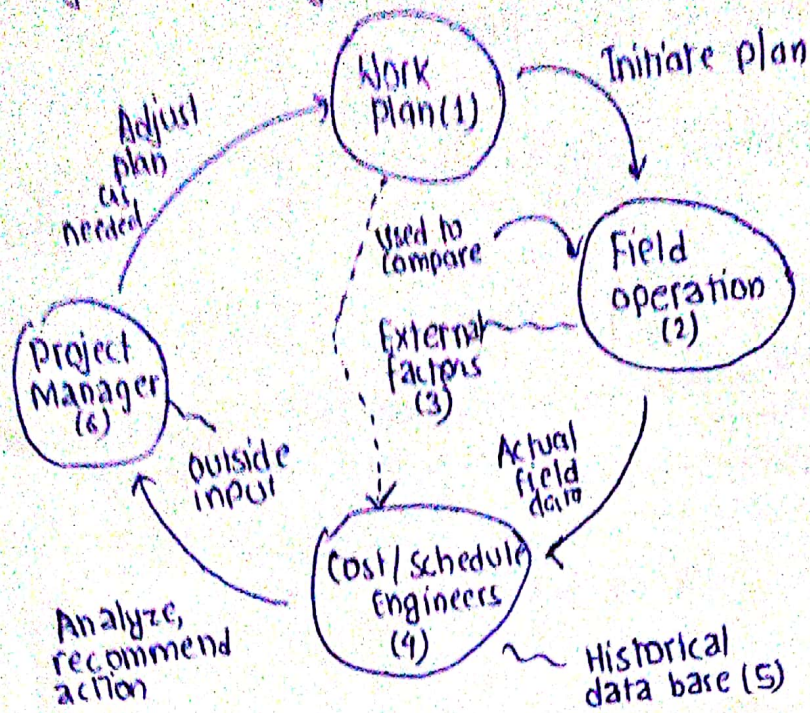 Work
plan(1)
Initiate plan
Adjust
plan
as
needed
Used to
compare
Field
operation
(2)
External
factors
(3)
Project
Manager
(6)
outside
input
Actual
field
data
Cost/schedule
Engineers
(4)
Analyze,
recommend
action
Historical
data base (5)